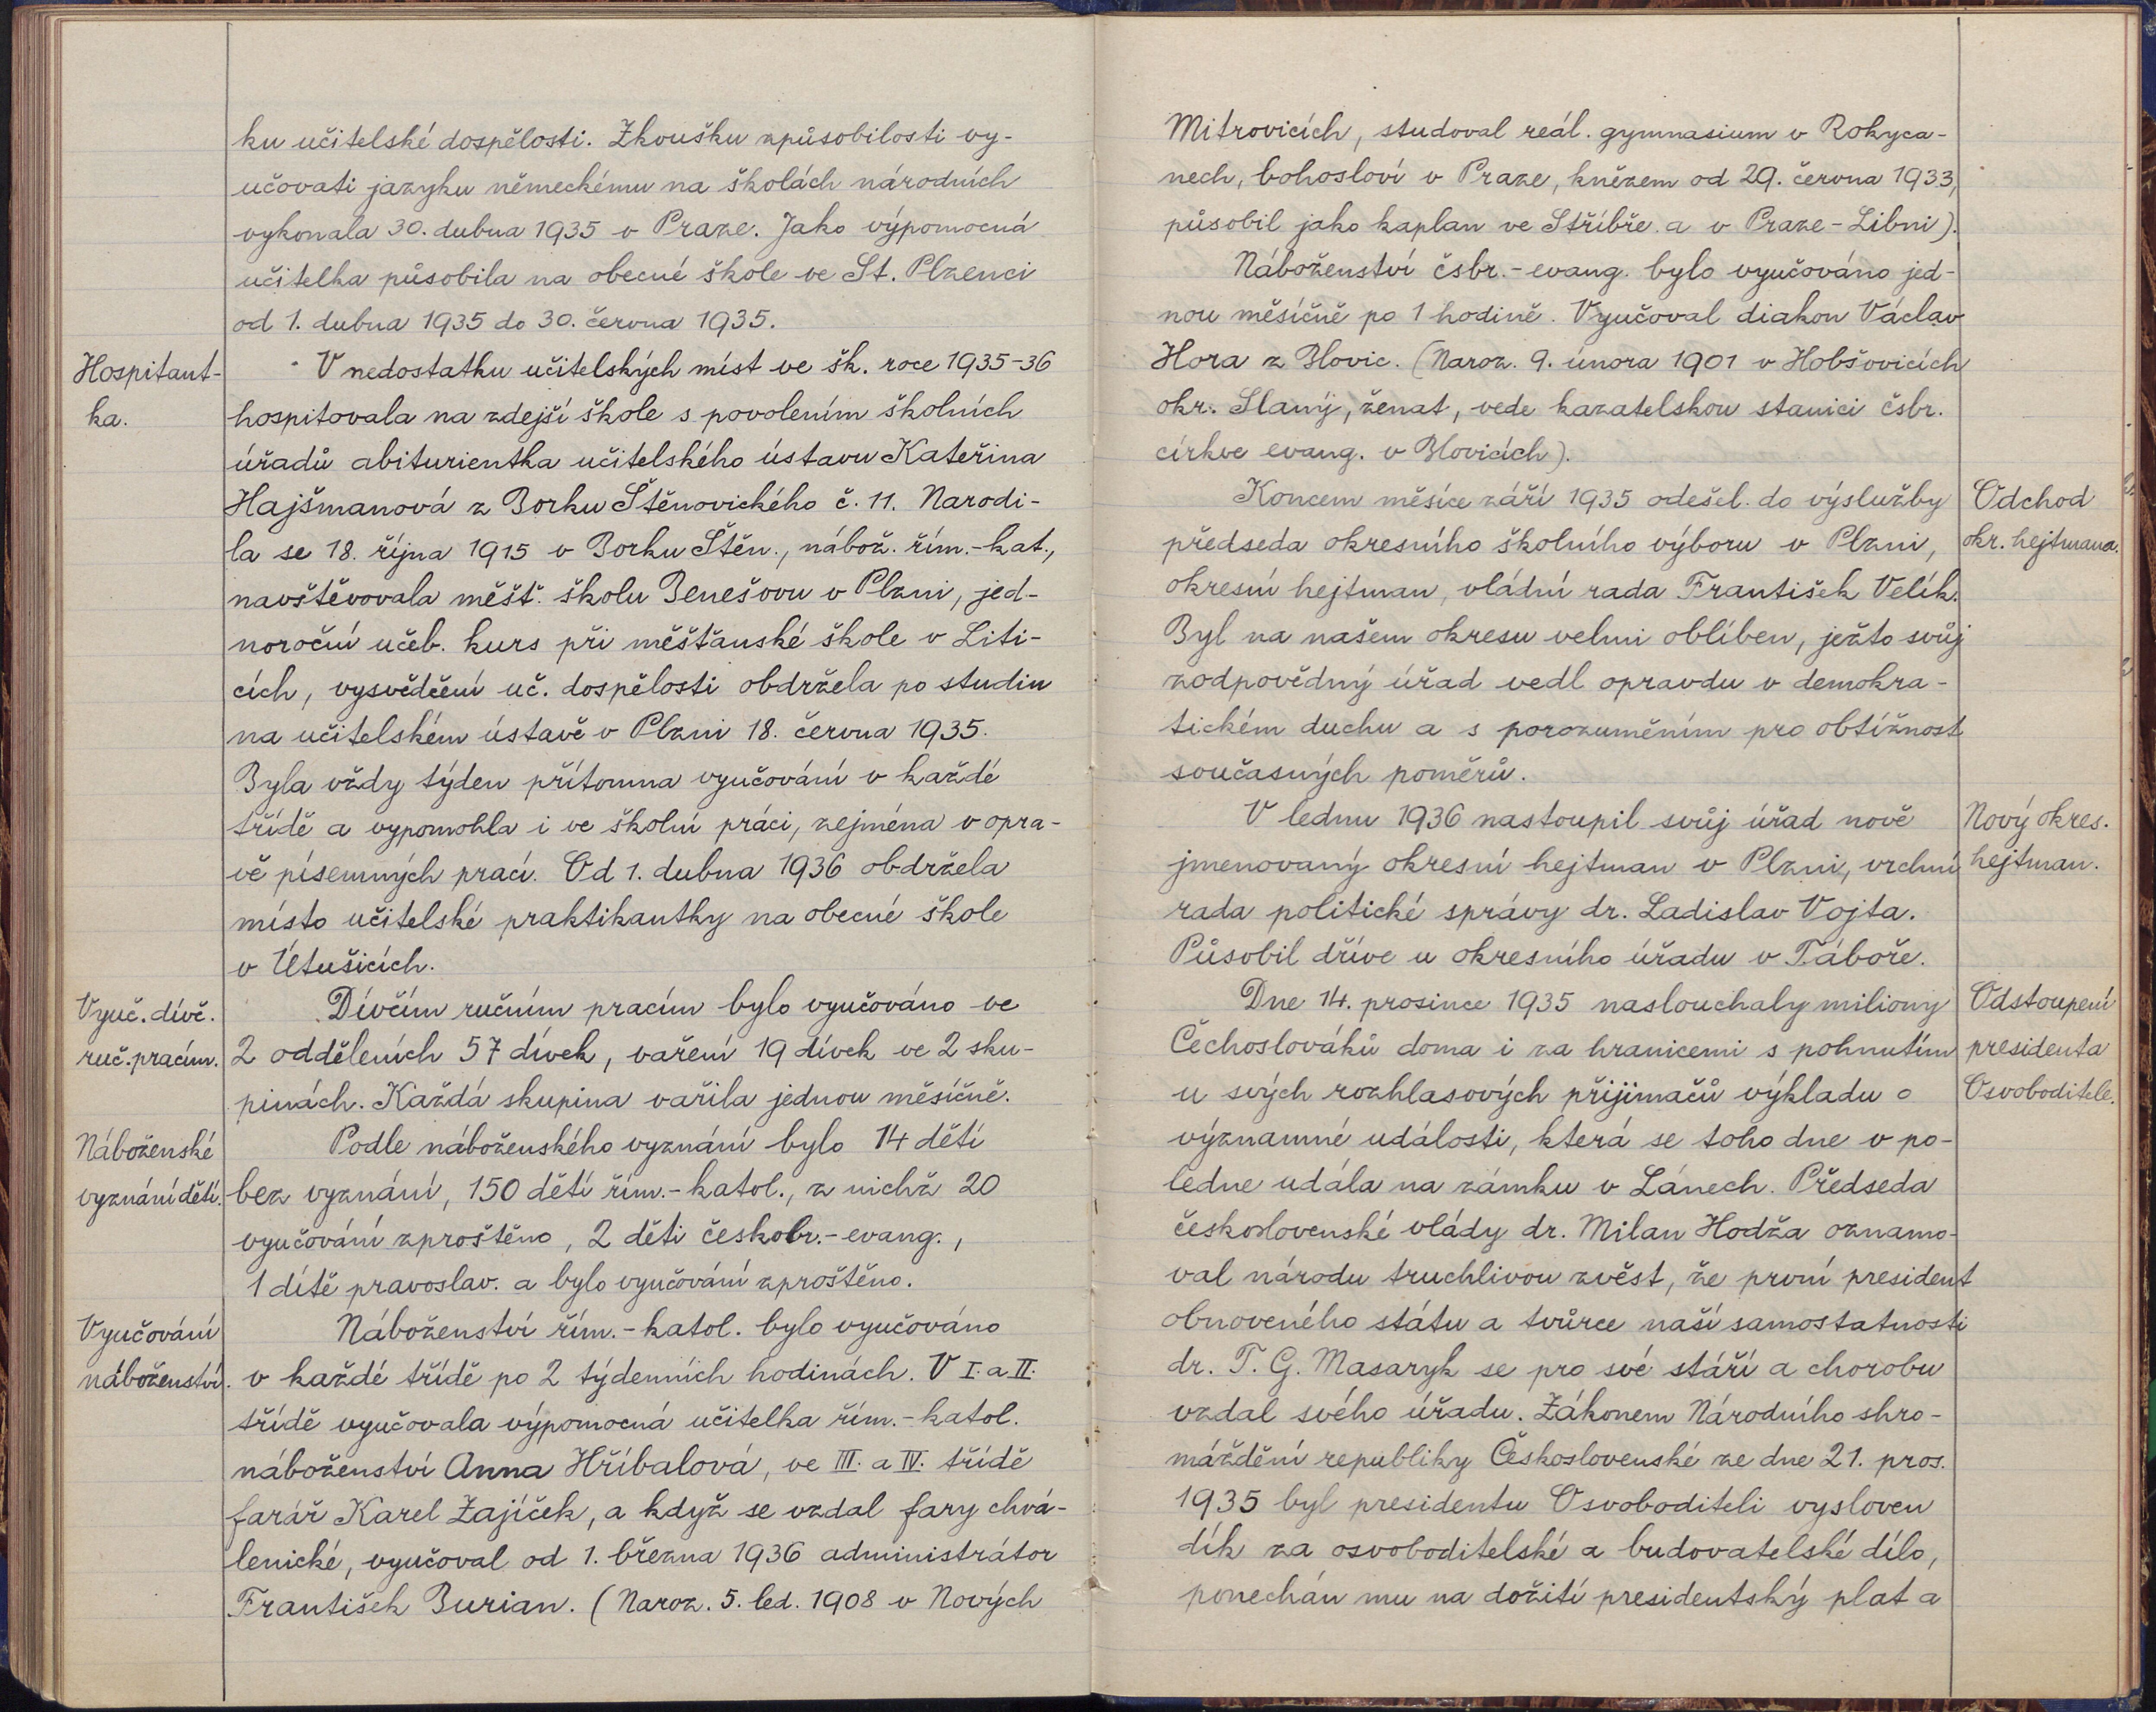 ku učitelské dospělosti. Zkoušku způsobilosti vy-
učovati jazyku německému na školách národních
vykonala 30. dubna 1935 v Praze. Jako výpomocná
učitelka působila na obecné škole ve St. Plzenci
od 1. dubna 1935 do 30. června 1935.
Hospitant-
ka.
V nedostatku učitelských míst ve šk. roce 1935-36
hospitovala na zdejší škole s povolením školních
úřadů abiturientka učitelského ústavu Kateřina
Hajšmanová z Borku Štěnovického č. 11. Narodi-
la se 18. října 1915 v Borku Štěn., nábož. řím.-kat.,
navštěvovala měšť. školu Benešovu v Plzni, jed-
noroční učeb. kurs při měšťanské škole v Liti-
cích, vysvědčení uč. dospělosti obdržela po studiu
na učitelském ústavě v Plzni 18. června 1935.
Byla vždy týden přítomna vyučování v každé
třídě a vypomohla i ve školní práci, zejména v opra-
vě písemných prací. Od 1. dubna 1936 obdržela
místo učitelské praktikantky na obecné škole
v Útušicích.
Vyuč. dívč.
ruč. pracím.
Dívčím ručním pracím bylo vyučováno ve
2 odděleních 57 dívek, vaření 19 dívek ve 2 sku-
pinách. Každá skupina vařila jednou měsíčně.
Náboženské
vyznání dětí.
Podle náboženského vyznání bylo 14 dětí
bez vyznání, 150 dětí řím.-katol., z nichž 20
vyučování zproštěno, 2 děti českobr.-evang.,
1 dítě pravoslav. a bylo vyučování zproštěno.
Vyučování
náboženství.
Náboženství řím.-katol. bylo vyučováno
v každé třídě po 2 týdenních hodinách. V I. a II.
třídě vyučovala výpomocná učitelka řím.-katol.
náboženství Anna Hříbalová, ve III. a IV. třídě
farář Karel Zajíček, a když se vzdal fary chvá-
lenické, vyučoval od 1. března 1936 administrátor
František Burian. (Naroz. 5. led. 1908 v Nových
Mitrovicích, studoval reál. gymnasium v Rokyca-
nech, bohosloví v Praze, knězem od 29. června 1933,
působil jako kaplan ve Stříbře a v Praze-Libni).
Náboženství čsbr.-evang. bylo vyučováno jed-
nou měsíčně po 1 hodině. Vyučoval diakon Václav
Hora z Blovic. (Naroz. 9. února 1901 v Hobšovicích
okr. Slaný, ženat, vede kazatelskou stanici čsbr.
církve evang. v Blovicích).
Koncem měsíce září 1935 odešel do výslužby
předseda okresního školního výboru v Plzni,
okresní hejtman, vládní rada František Velík.
Byl na našem okresu velmi oblíben, ježto svůj
zodpovědný úřad vedl opravdu v demokra-
tickém duchu a s porozuměním pro obtížnost
současných poměrů.
Odchod
okr. hejtmana.
V lednu 1936 nastoupil svůj úřad nově
jmenovaný okresní hejtman v Plzni, vrchní
rada politické správy dr. Ladislav Vojta.
Působil dříve u okresního úřadu v Táboře.
Nový okres.
hejtman.
Dne 14. prosince 1935 naslouchaly miliony
Čechoslováků doma i za hranicemi s pohnutím
u svých rozhlasových přijimačů výkladu o
významné události, která se toho dne v po-
ledne udála na zámku v Lánech. Předseda
československé vlády dr. Milan Hodža oznamo-
val národu truchlivou zvěst, že první president
obnoveného státu a tvůrce naší samostatnosti
dr. T. G. Masaryk se pro své stáří a chorobu
vzdal svého úřadu. Zákonem Národního shro-
máždění republiky Československé ze dne 21. pros.
1935 byl presidentu Osvoboditeli vysloven
dík za osvoboditelské a budovatelské dílo,
ponechán mu na dožití presidentský plat a
Odstoupení
presidenta
Osvoboditele.